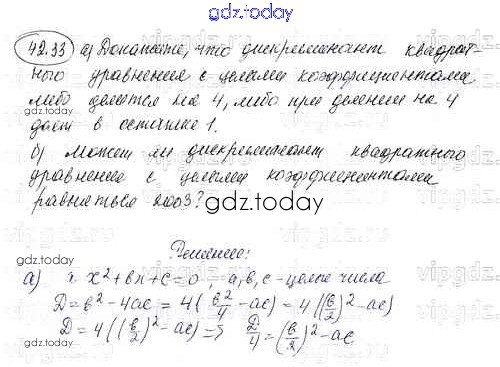 gdz.today
42.33 а) Докажите, что дискриминант квадрат-
ного уравнения с целыми коэффициентами
либо делится на 4, либо при делении на 4
дает в остатке 1.
gdz.today
б) Может ли дискриминант квадратного
уравнения с целыми коэффициентами
равняться 2003?
gdz.today
Решение:
а) x²+bx+c=0, a,b,c - целые числа
D=b²-4ac = 4(b²/4 -ac) = 4((b/2)²-ac)
D=4((b/2)²-ac) => D/4=(b/2)²-ac
gdz.today
gdz.today
vipgdz
vipgdz